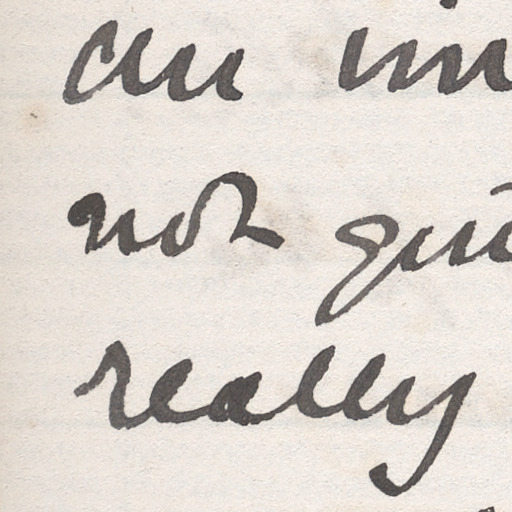 an im
not qui
really